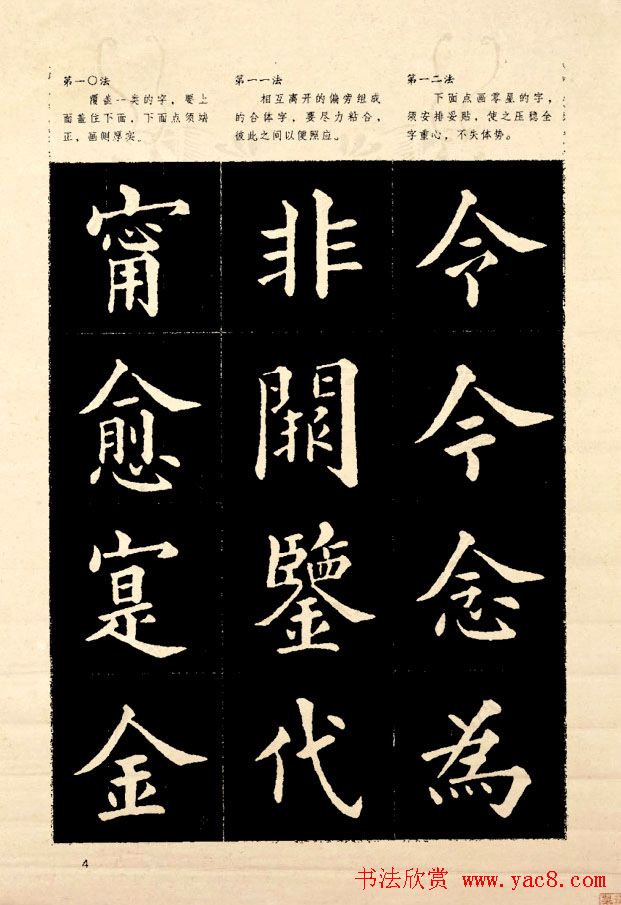 第一〇法
覆盖一类的字，要上
面盖住下面，下面点须端
正，画侧厚实。
第一一法
相互离开的偏旁组成
的合体字，要尽力粘合，
彼此之间以便照应。
第一二法
下面点画零星的字，
须安排妥贴，使之压稳全
字重心，不失体势。
甯 非 令
愈 關 今
寔 鑒 念
金 代 為
4
书法欣赏 www.yac8.com